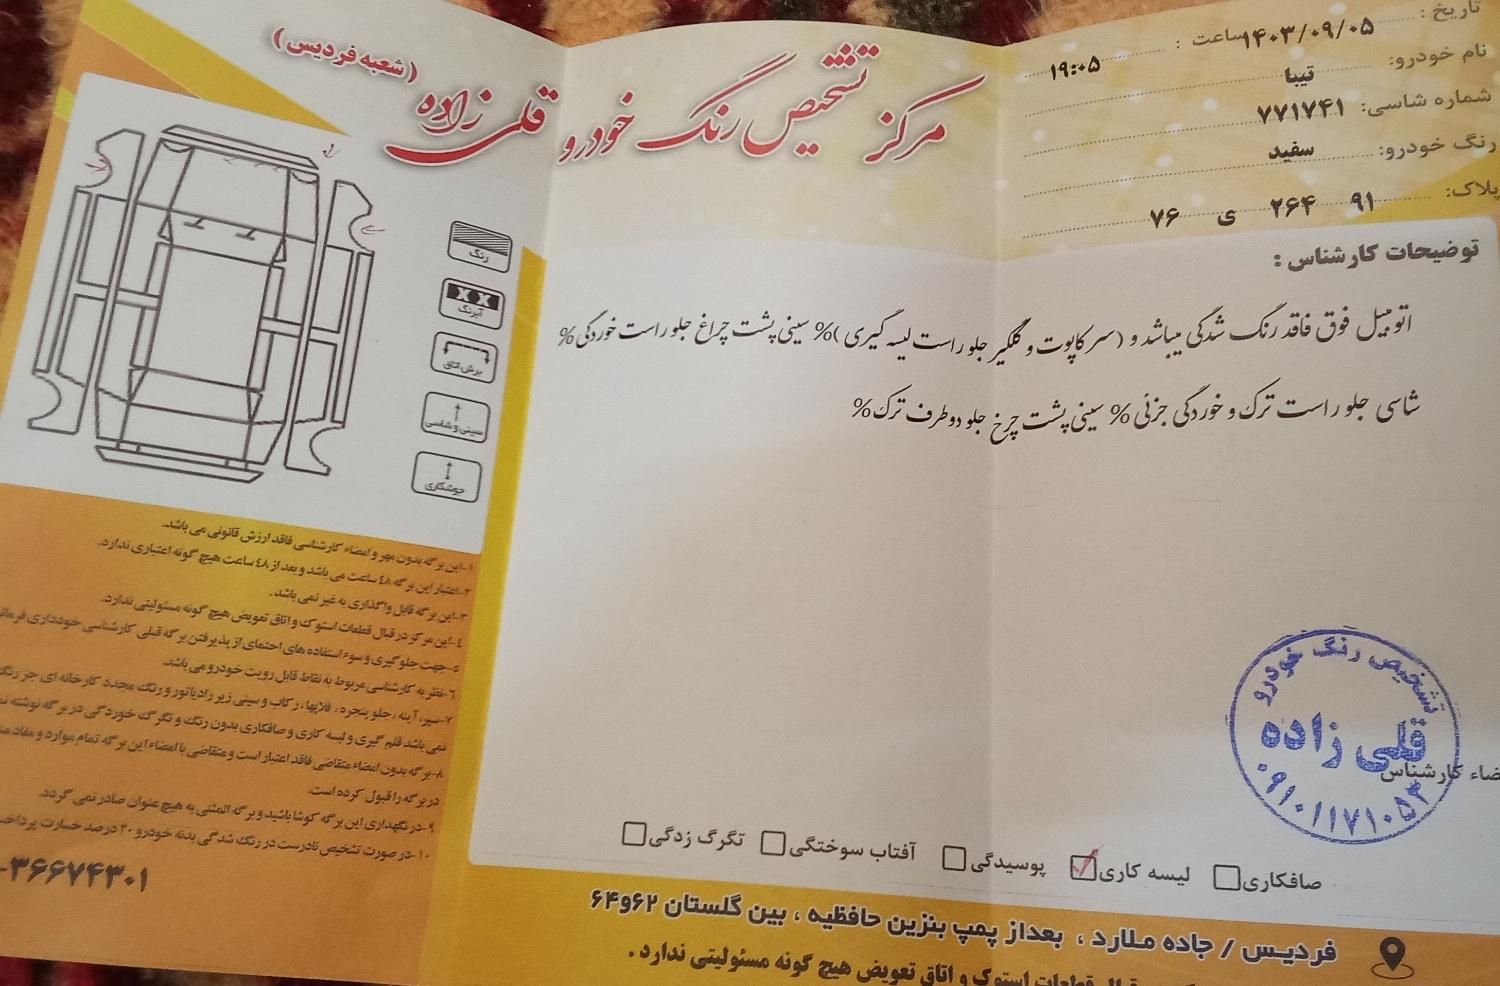 مرکز تشخیص رنگ خودرو قلی زاده
(شعبه فردیس)
تاریخ: ۱۴۰۳/۰۹/۰۵ ساعت: ۱۹:۰۵
نام خودرو: تیبا
شماره شاسی: ۷۷۱۷۴۱
رنگ خودرو: سفید
پلاک: ۹۱ ۲۶۴ ی ۷۶
توضیحات کارشناس:
اتومبیل فوق فاقد رنگ شدگی میباشد و (سرکاپوت و گلگیر جلو راست لیسه گیری)% سینی پشت چراغ جلو راست خوردگی%
شاسی جلو راست ترک و خوردگی جزئی% سینی پشت چرخ جلو دو طرف ترک%
رنگ
آبرنگ
برش اتاق
سینی و شاسی
جوشکاری
۱-این برگه بدون مهر و امضاء کارشناسی فاقد ارزش قانونی می باشد.
۲-اعتبار این برگه ۴۸ ساعت می باشد و بعد از ۴۸ ساعت هیچ گونه اعتباری ندارد.
۳-این برگه قابل واگذاری به غیر نمی باشد.
۴-این مرکز در قبال قطعات استوک و اتاق تعویض هیچ گونه مسئولیتی ندارد.
۵-جهت جلوگیری و سوء استفاده های احتمای از پذیرفتن برگه قبلی کارشناسی خودداری
۶-نظریه کارشناسی مربوط به نقاط قابل رویت خودرو می باشد.
۷-سپر، آینه، جلو پنجره، قلابها، رکاب و سینی زیر رادیاتور و رنگ مجدد کارخانه ای جز
نمی باشد قلم گیری و لیسه کاری و صافکاری بدون رنگ و تگرگ خوردگی در برگه نوشته
۸-برگه بدون امضاء متقاضی فاقد اعتبار است و متقاضی با امضاء این برگه تمام موارد و مفاد
در برگه را قبول کرده است.
۹-در نگهداری این برگه کوشا باشید و برگه المثنی به هیچ عنوان صادر نمی گردد.
۱۰-در صورت تشخیص نادرست در رنگ شدگی بدنه خودرو ۲۰ درصد خسارت
۳۶۶۷۴۳۰۱
تشخیص رنگ خودرو
قلی زاده
۰۹۱۰۱۱۷۱۰۵۳
کارشناس
صافکاری لیسه کاری پوسیدگی آفتاب سوختگی تگرگ زدگی
فردیس / جاده ملارد، بعداز پمپ بنزین حافظیه، بین گلستان ۶۲و۶۴
قطعات استوک و اتاق تعویض هیچ گونه مسئولیتی ندارد.